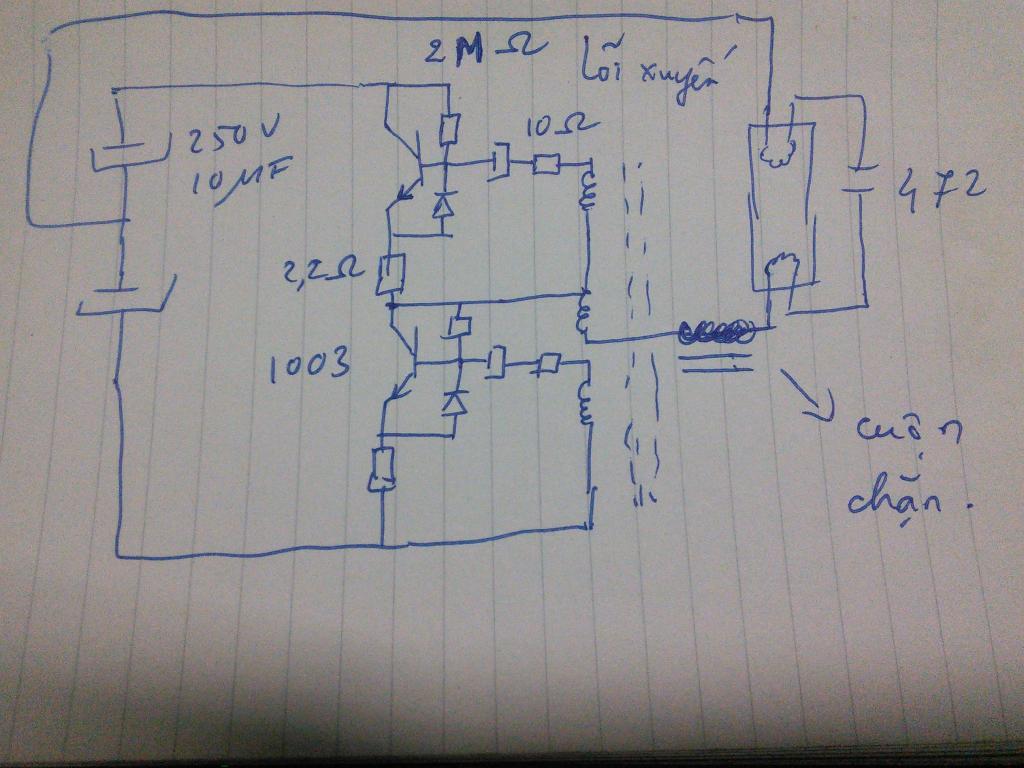 2 MΩ
Lõi xuyến
250V
10μF
10Ω
472
2,2Ω
1003
cuộn
chặn.